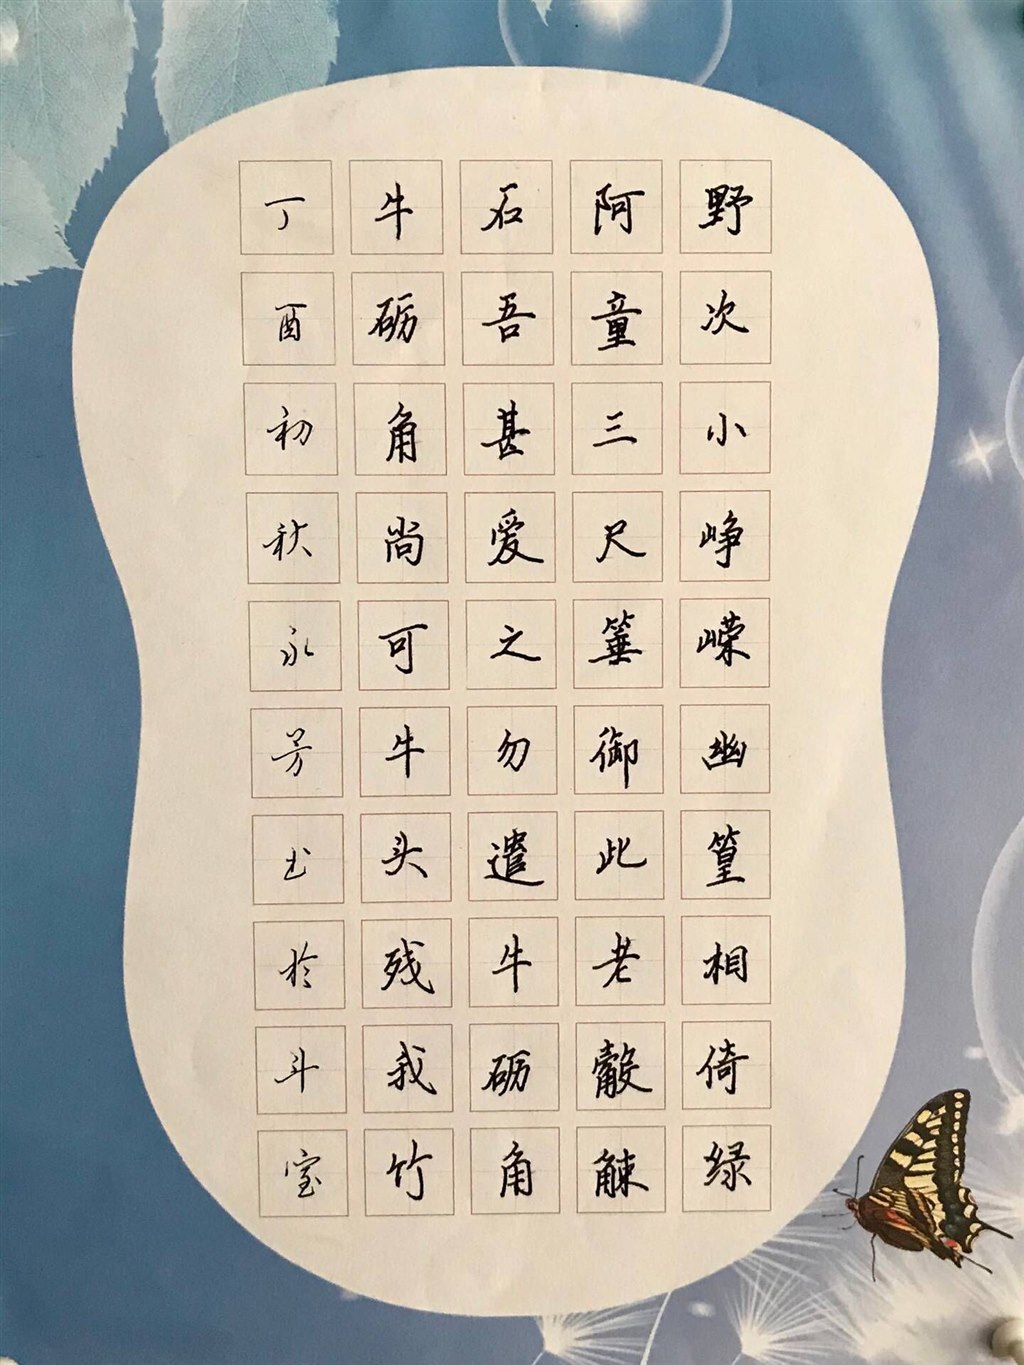 野次小峥嵘幽篁相倚绿
阿童三尺箠御此老觳觫
石吾甚爱之勿遣牛砺角
牛砺角尚可牛头残我竹
丁酉初秋永芳书於斗室